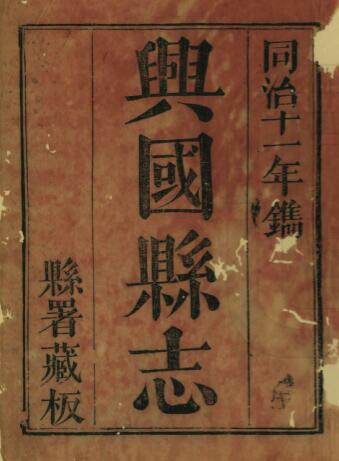 同治十一年鐫
興國縣志
縣署藏板